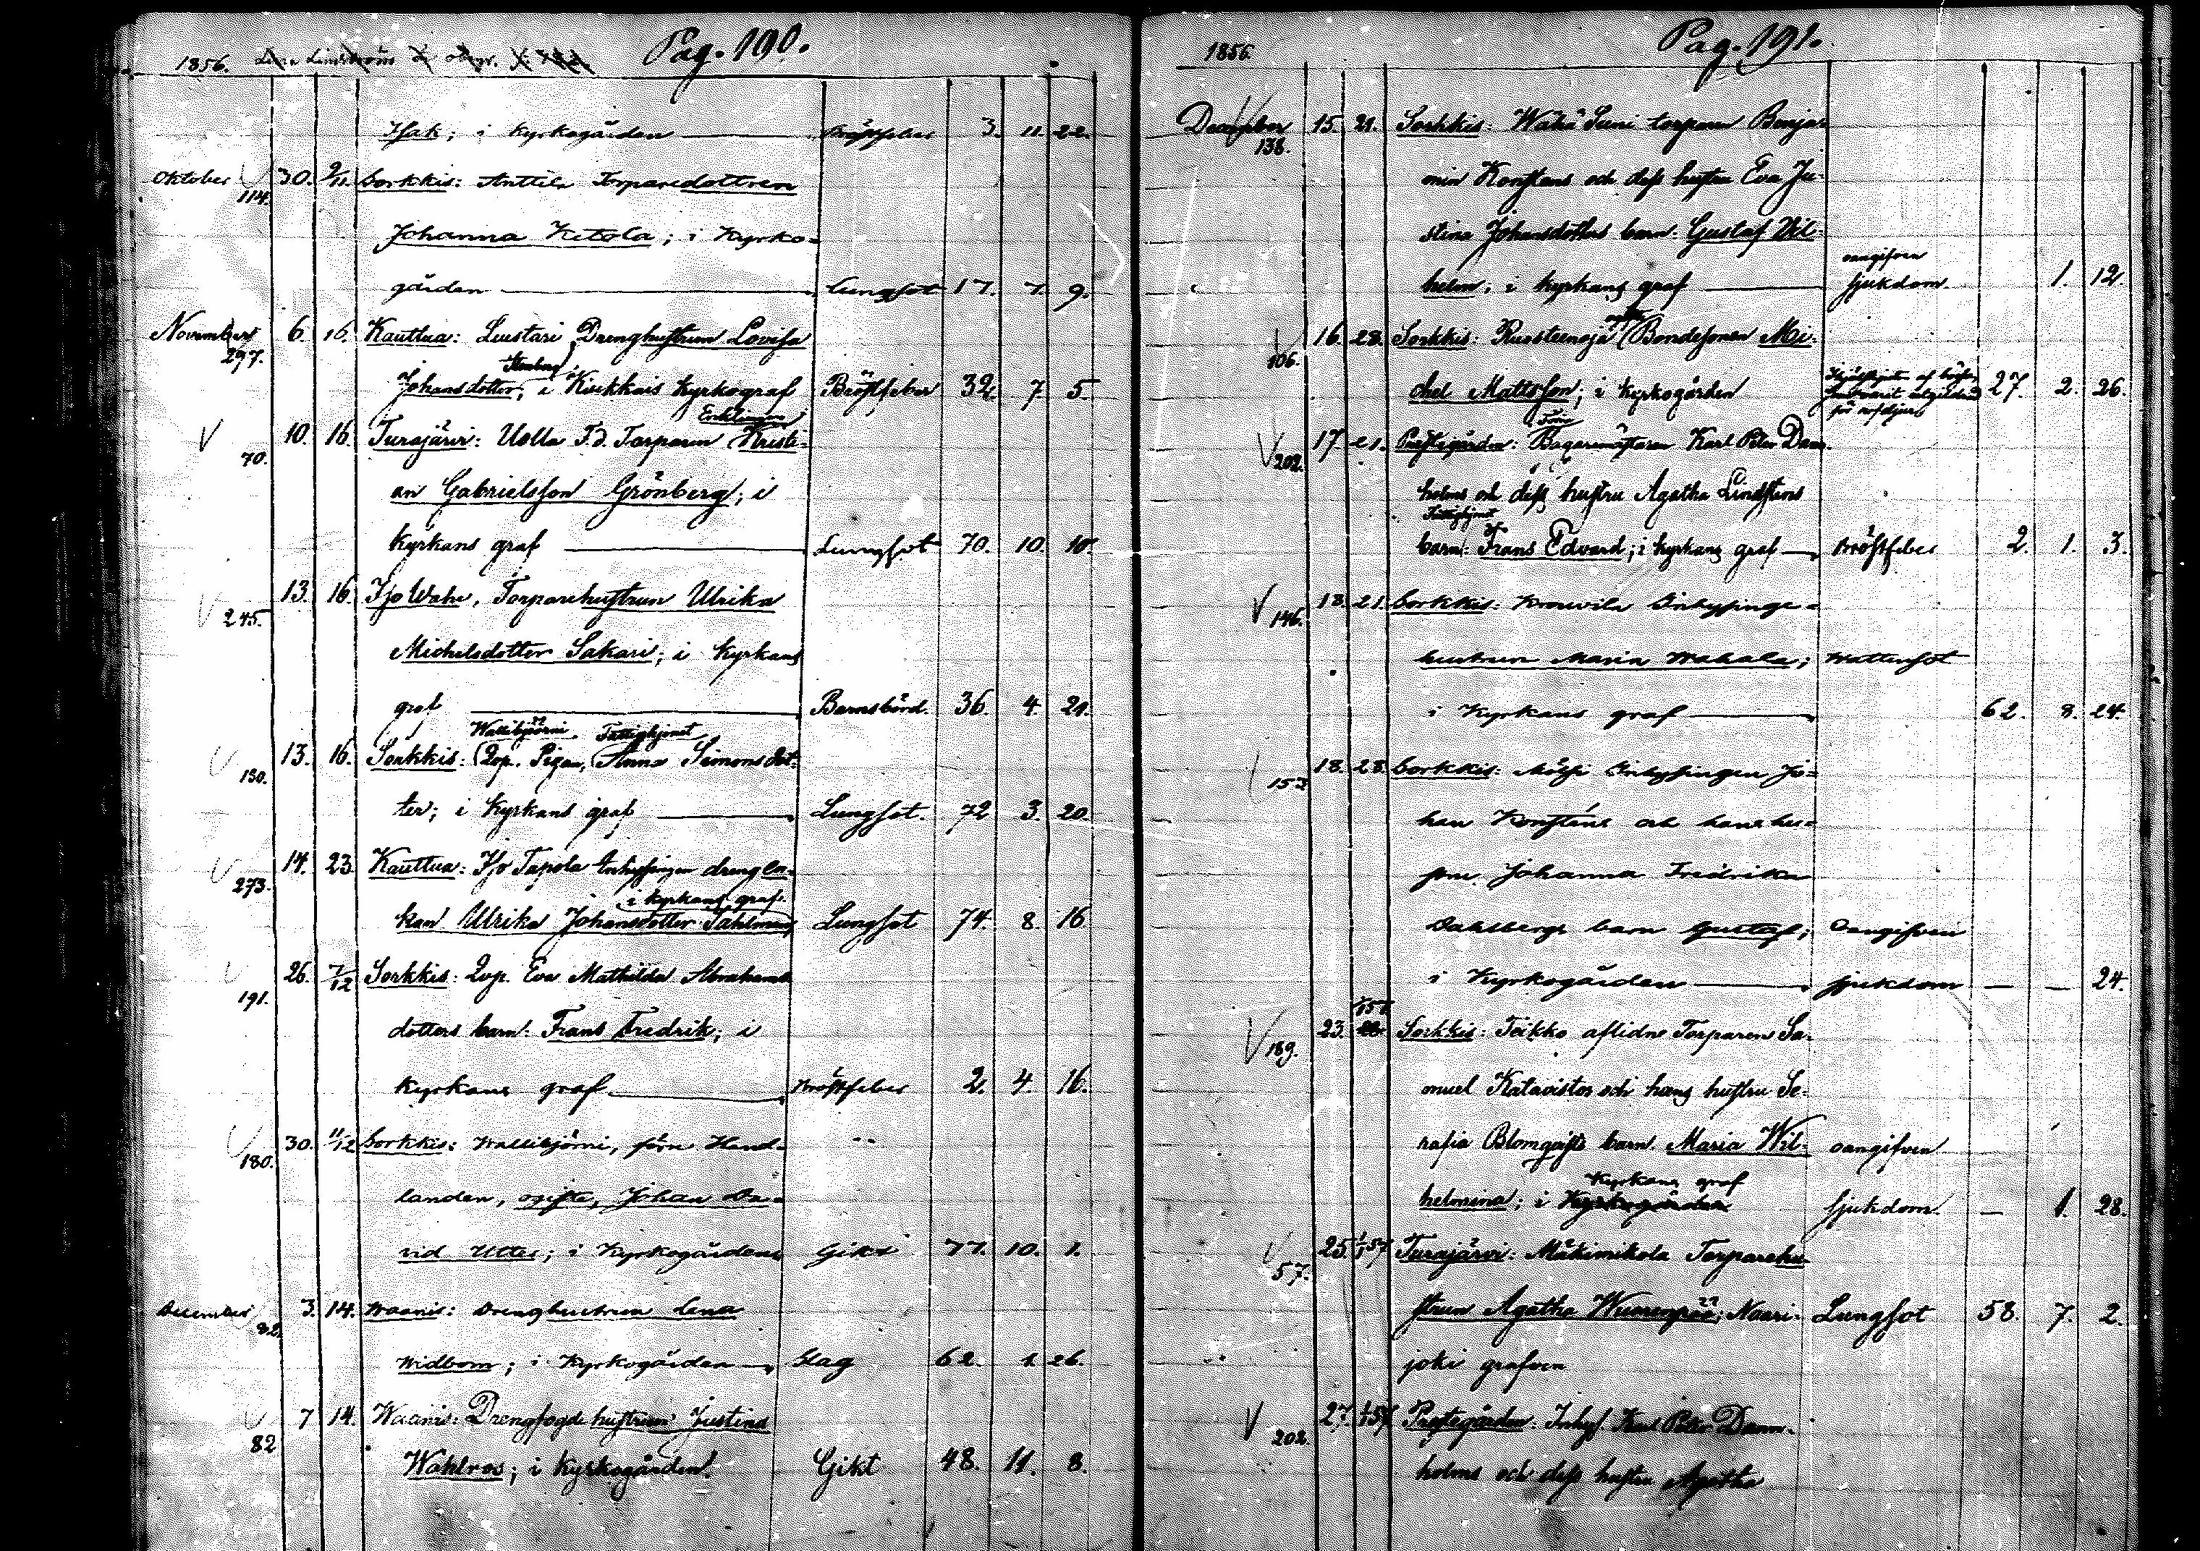 1856. Pag. 190.
Isak; i kyrkogården Bröstfeber 3. 11. 22.
Oktober 114. 30. 2/11 Sorkkis: Anttila Torparedottren
Johanna Ketola; i kyrko-
gården Lungsot 17. 7. 9.
November 297. 6. 16. Kauttua: Luustari Drenghustrun Lovisa
Stenberg
Johansdotter, i Kiukkais kyrkograf Bröstfeber 32. 7. 5.
Enklingen
70. 10. 16. Turajärvi: Uolla F.d. Torparen Kristi-
an Gabrielsson Grönberg; i
kyrkans graf Lungsot 70. 10. 10.
245. 13. 16. Iso Wahe, Torparehustrun Ulrika
Michelsdotter Sakari; i kyrkans
graf Barnsbörd. 36. 4. 21.
Wallibjörni Fattighjonet
130. 13. 16. Sorkkis: Qvp. Pigan, Anna Simonsdot-
ter; i kyrkans graf Lungsot. 72 3. 20.
273. 14. 23. Kauttua: Iso Tapola Inhyssingen drengen-
i kyrkans graf.
kan Ulrika Johansdotter Sahlman, Lungsot 74. 8. 16
191. 26. 7/12 Sorkkis: Qvp. Eva Mathilda Abrahams
dotters barn: Frans Fredrik; i
kyrkans graf Bröstfeber 2. 4. 16.
180. 30. 11/12 Sorkkis: Wallibjörni, förn Hand-
landen, ogifte, Johan Da-
vid Utter; i Kyrkogården Gikt 77. 10. 1.
December 82. 3. 14. Waanis: Drenghustrun Lena
Widbom; i Kyrkogården Slag 62. 1. 26.
82 7 14. Waanis: Drengfogde hustrun Justina
Wahlros; i kyrkogården. Gikt 48. 11. 8.
1856. Pag. 191.
December 138. 15. 21. Sorkkis: Wähä Suni torparen Benja-
min Konstens och dess hustru Eva Ju-
stina Johansdotters barn: Gustaf Wil-
oangifven
helm; i kyrkans graf sjukdom. 1. 12.
106. 16. 28. Sorkkis: Ruosteenoja Bondesonen Mi-
chel Mattsson; i kyrkogården 27. 2. 26.
Förre
202. 17. 21. Prestegården: Bagaremästaren Karl Peter Dam-
holms och dess hustru Agatha Lindstens
barn: Frans Edvard; i kyrkans graf Bröstfeber 2. 1. 3.
146. 18. 21. Sorkkis: Krouvila Inhyssinge-
hustrun Maria Wahala; Wattensot
i Kyrkans graf 62. 8. 24.
157 18. 28. Sorkkis: Mölsi Inhyssingen Jo-
han Konsténs och hans hu-
stru Johanna Fredrika
Dahlbergs barn Gustaf; Oangifven
i Kyrkogården sjukdom — — 24.
189. 23. Sorkkis: Teikko aflidne Torparen Sa-
muel Katavistos och hans hustru Se-
rafia Blomqvists barn. Maria Wil- oangifven
Kyrkans graf
helmina; i Kyrkogården sjukdom. — 1. 28.
57. 25. 1/1 57 Turajärvi: Mäkimikola Torparehu-
strun Agatha Wuorenpää; Noori- Lungsot 58. 7. 2.
joki grafven
202. 27. 1/1 57 Prestegården: Inhys. Karl Peter Dam-
holms och dess hustru Agatha